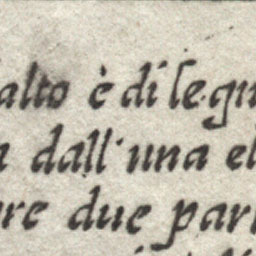 alto è di legu
a dall'una el
re due par